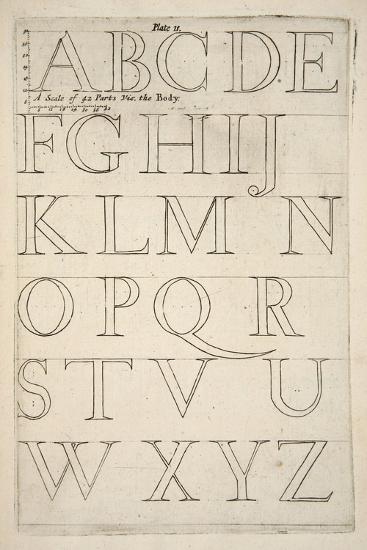 Plate 11.
A B C D E
A Scale of 42 Parts Viz. the Body.
F G H I J
K L M N
O P Q R
S T V U
W X Y Z